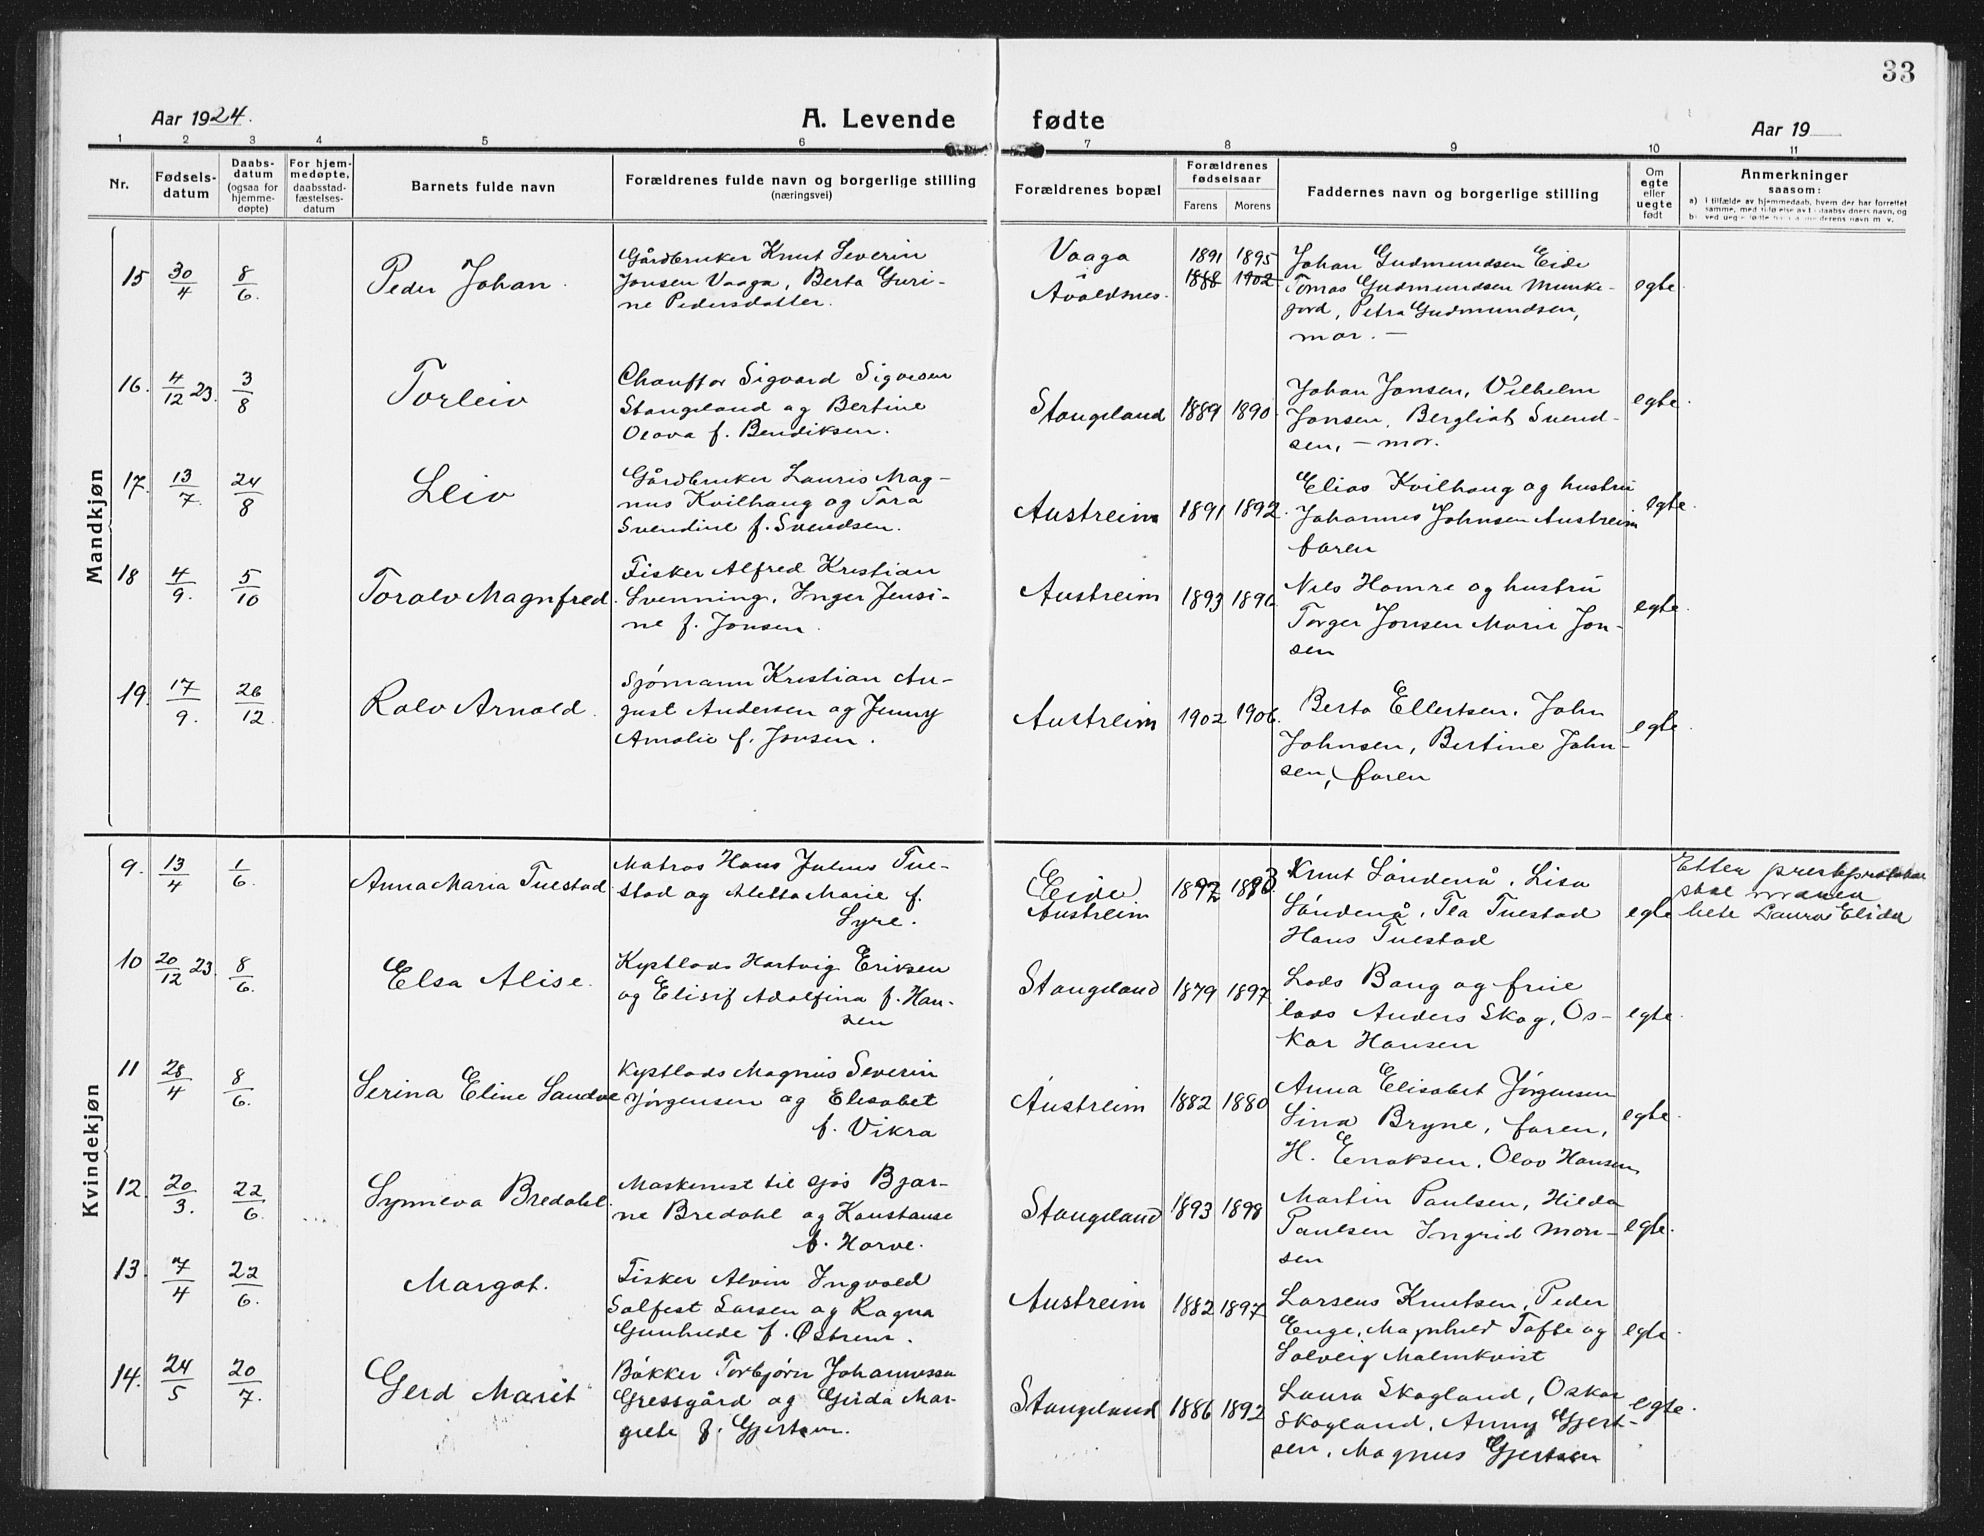 33
Aar 1924.
A. Levende fødte
Aar 19
1 2 3 4 5 6 7 8 9 10 11
Nr.
Fødsels-
datum
Daabs-
datum
(ogsaa for
hjemme-
døpte)
For hjem-
medøpte,
daabsstad-
fæstelses-
datum
Barnets fulde navn
Forældrenes fulde navn og borgerlige stilling
(næringsvei)
Forældrenes bopæl
Forældrenes
fødselsaar
Farens Morens
Faddernes navn og borgerlige stilling
Om
egte
eller
uegte
født
Anmerkninger
saasom:
a) I tilfælde av hjemmedaab, hvem der har forrettet
Mandkjøn
15 30/4 8/6. Peder Johan.
Gårdbruker Knut Severin
Jonsen Vaaga, Berta Guri-
ne Pedersdatter.
Vaaga
i
Avaldsnes.
1891 1895
1888 1902
Johan Gudmundsen Eide
Tomas Gudmundsen Munke-
jord, Petra Gudmundsen,
mor. —
egte
16. 4/12 23. 3/8 Torleiv
Chauffør Sigvard Sigvesen
Stangeland og Bertine
Olava f. Bendiksen.
Stangeland 1889 1890
Johan Jonsen, Vilhelm
Jonsen, Bergliot Svend-
sen, — mor.
egte.
17. 13/7. 24/8 Leiv
Gårdbruker Lauris Mag-
nus Kvilhaug og Tora
Svendine f. Svendsen.
Austreim 1891 1892.
Elias Kvilhaug og hustru
Johannes Johnsen Austreim
faren
egte.
18 4/9. 5/10 Toralv Magnfred.
Fisker Alfred Kristian
Svenning, Inger Jensi-
ne f. Jonsen.
Austreim 1893 1896
Nils Homre og hustru
Torger Jonsen Marie Jon-
sen
egte.
19. 17/9. 26/12. Ralv Arnold.
Sjømann Kristian Au-
gust Andersen og Jenny
Amalie f. Jonsen.
Austreim 1902 1906.
Berta Ellertsen, John
Johnsen, Bertine John-
sen, faren
egte.
Kvindekjøn
9. 13/4 1/6. Anna Maria Tuestad
Matros Hans Julius Tue-
stad og Aletta Marie f.
Syre.
(Eide)
Austreim
1892 1893
Knut Søndenå, Lisa
Søndenå, Tea Tuestad
Hans Tuestad
egte
Etter presteprotokol
skal moren
hete Laura Elida
10 20/12 23. 8/6. Elsa Alise.
Kystlods Hartvig Eriksen
og Elisif Adolfina f. Han-
sen
Stangeland 1879 1897
Lods Bang og frue
lods Anders Skog, Os-
kar Hansen
egte.
11 28/4 8/6. Serina Eline Sandve
Kystlods Magnus Severin
Jørgensen og Elisabet
f. Vikra
Austreim 1882 1880
Anna Elisabet Jørgensen
Sina Bryne, faren,
H. Enoksen, Olav Hansen
egte.
12. 20/3. 22/6. Synneva Bredahl.
Maskenist til sjøs Bjar-
ne Bredahl og Konstanse
f. Horve.
Stangeland 1893 1898
Martin Paulsen, Hilda
Paulsen Ingrid Mon-
sen
egte.
13. 7/4 22/6. Margot.
Fisker Alvin Ingvald
Solfest Larsen og Ragna
Gunhilde f. Østrem.
Austreim 1882 1897
Larsens Knutsen, Peder
Enge, Magnhild Tofte og
Solveig Malmkvist
egte.
14. 24/5 20/7. Gerd Marit
Bøkker Torbjørn Johannessen
Gressgård og Gerda Mar-
grete f. Gjertsen.
Stangeland 1886 1892
Laura Skogland, Oskar
Skogland, Anny Gjert-
sen, Magnus Gjertsen
egte.